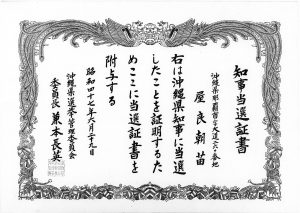 知事当選証書
沖縄県那覇市字大道六八番地
屋良朝苗
右は沖縄県知事に当選
したことを証明するた
めここに当選証書を
附与する
昭和四十七年六月二十九日
沖縄県選挙管理委員会
委員長 兼本長英